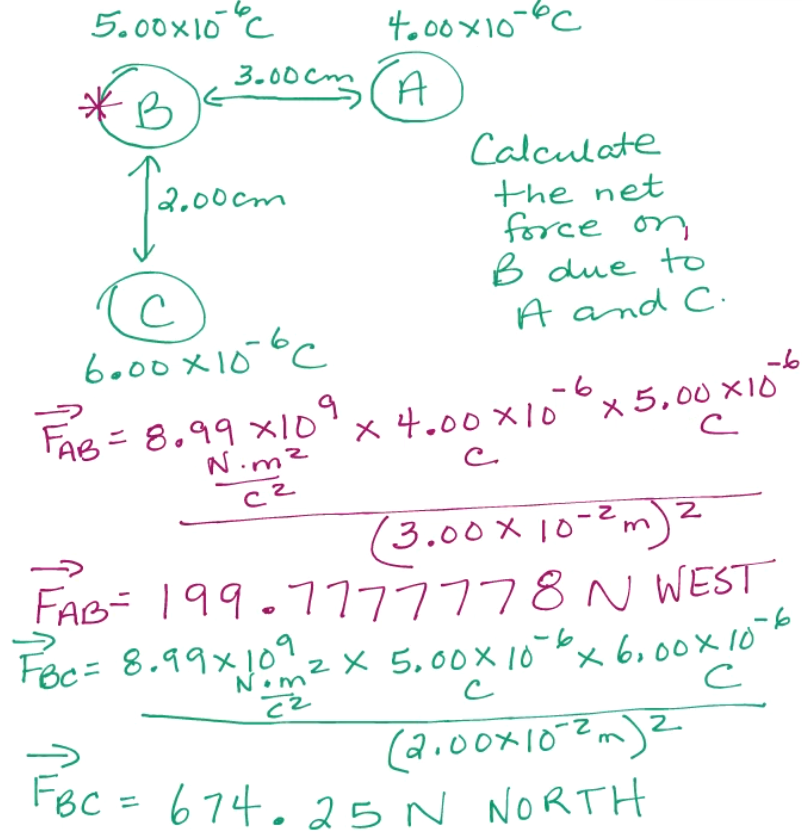 5.00x10⁻⁶C 4.00x10⁻⁶C
* B 3.00cm A
2.00cm
C
6.00x10⁻⁶C
Calculate
the net
force on
B due to
A and C.
F⃗AB = 8.99 x10⁹ N·m²/C² x 4.00 x10⁻⁶ C x 5.00 x10⁻⁶ C
(3.00 x 10⁻² m)²
F⃗AB = 199.7777778 N WEST
F⃗BC = 8.99x10⁹ N·m²/C² x 5.00x10⁻⁶ C x 6.00x10⁻⁶ C
(2.00x10⁻² m)²
F⃗BC = 674.25 N NORTH